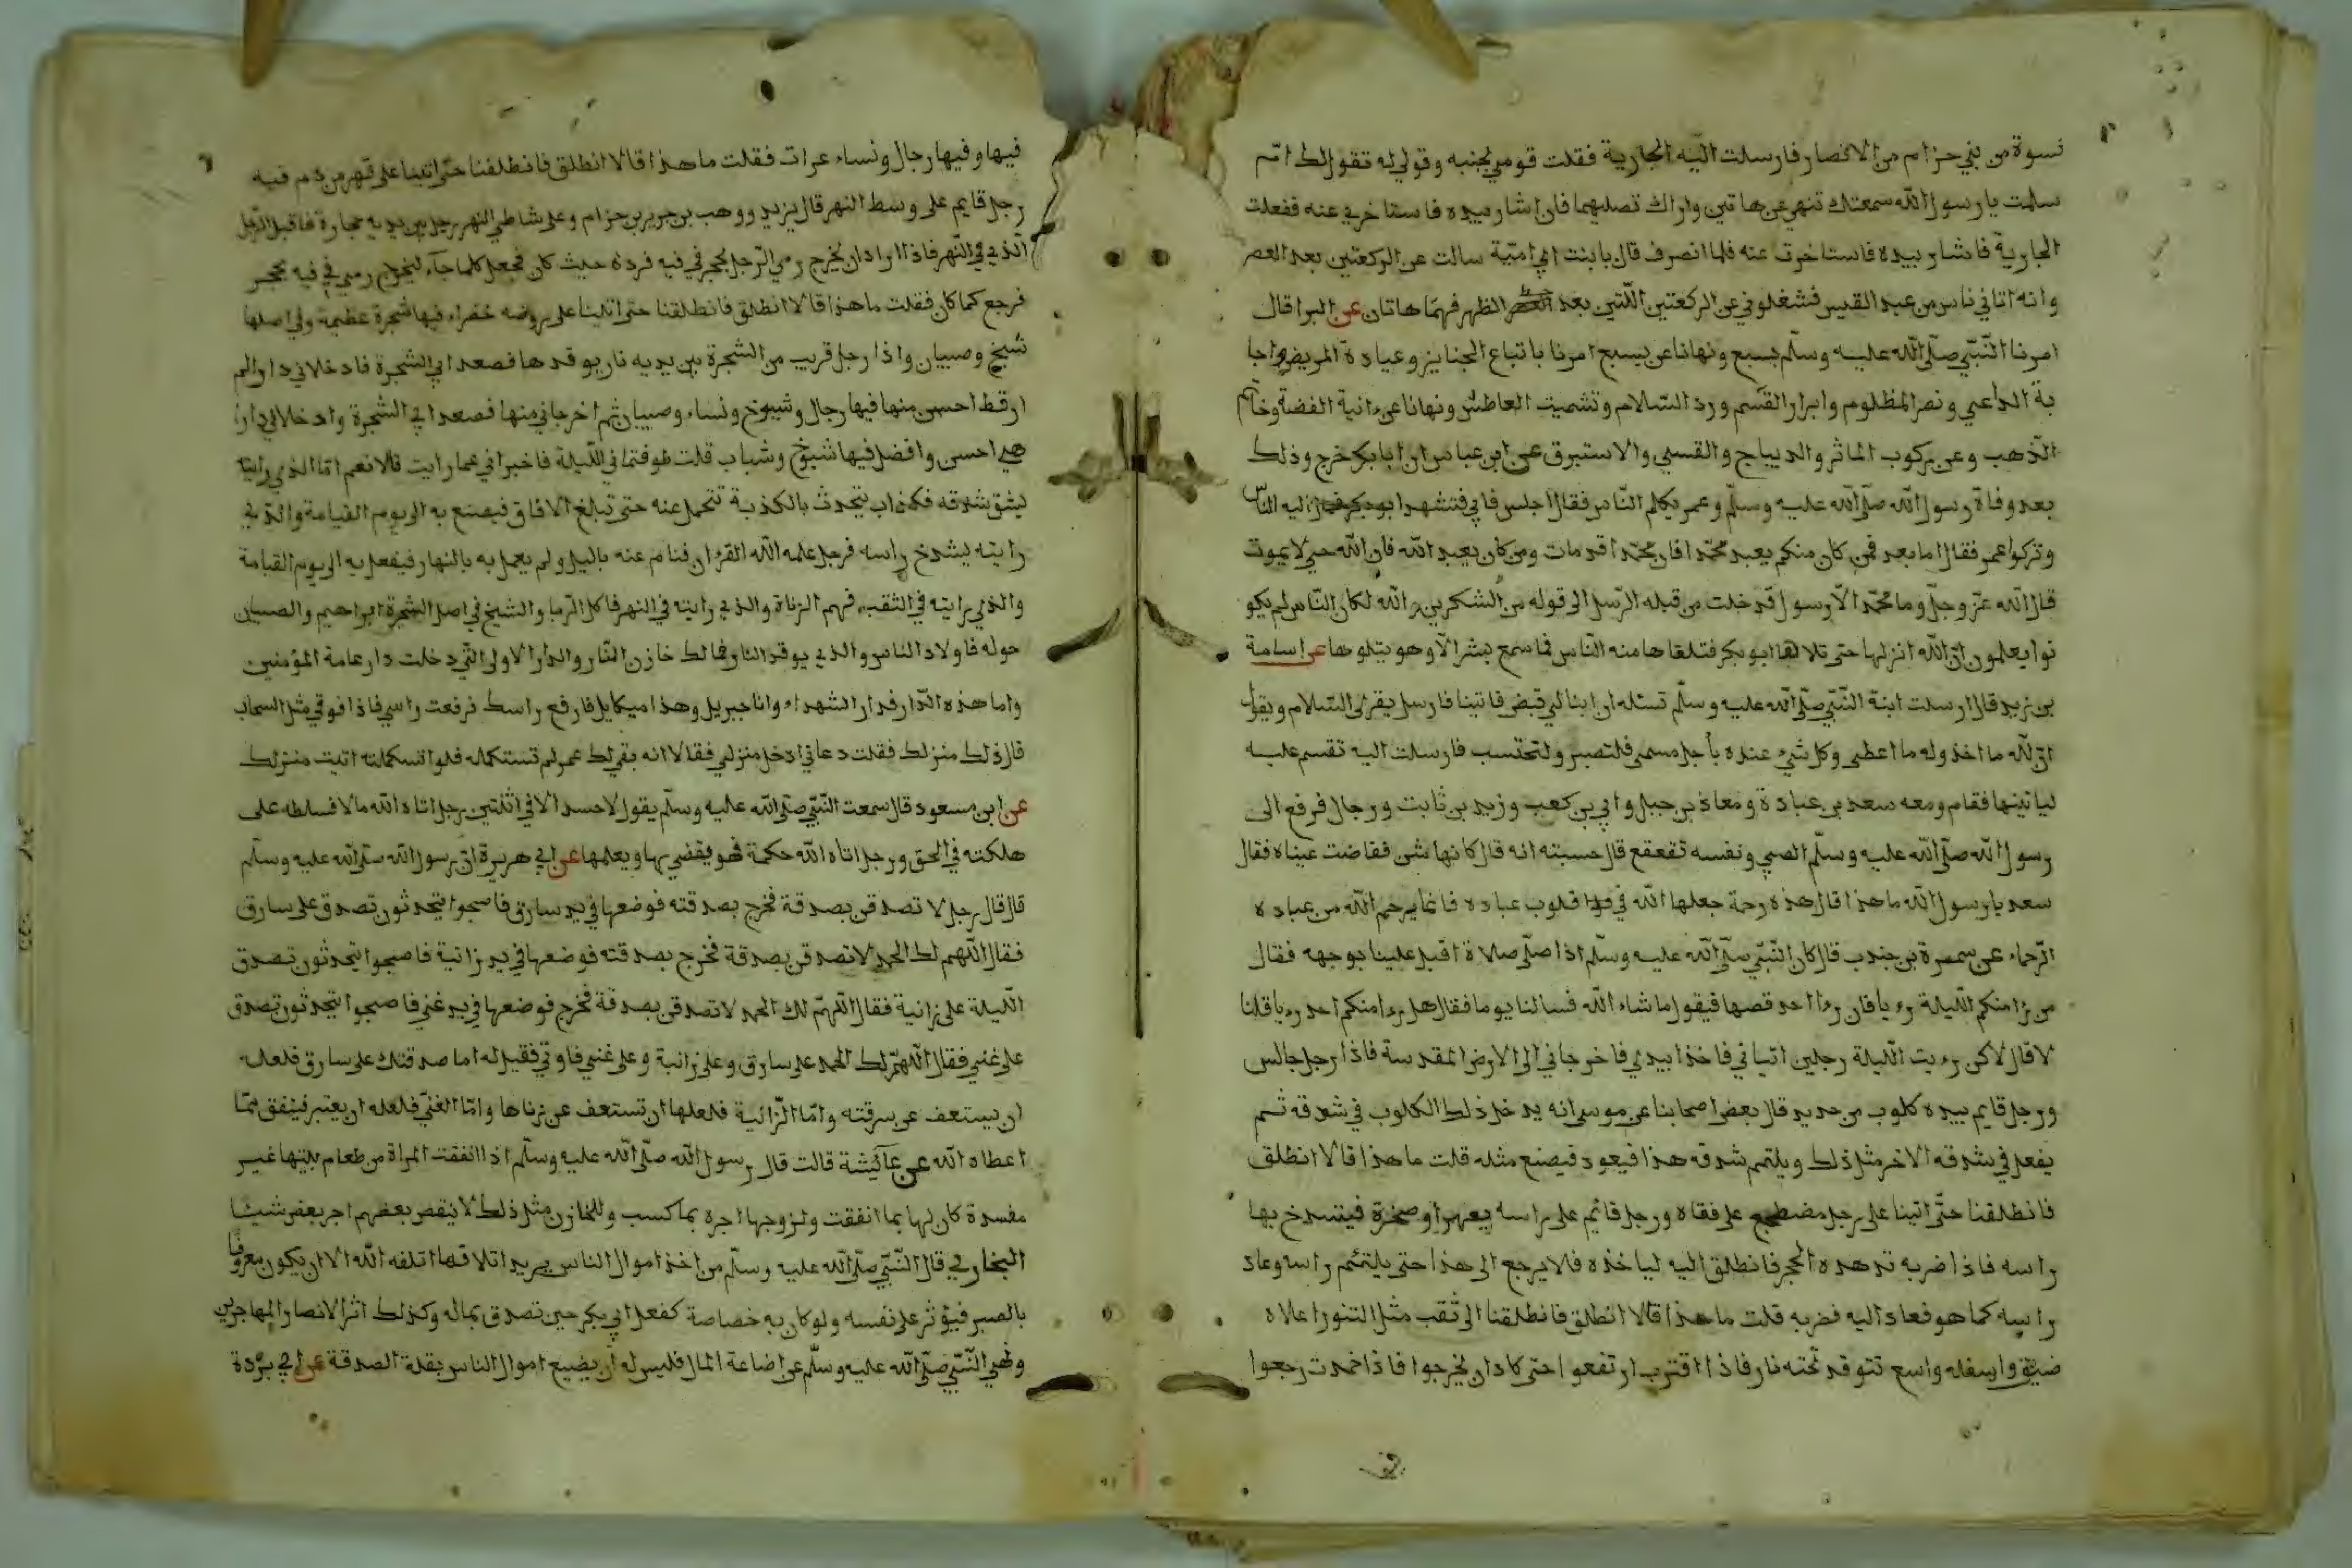 نسوة من بني حزام من الانصار فارسلت اليه الجارية فقلت قومي بجنبه وقولي له تقول لك ام
سلمت يا رسول الله سمعتك تنهى عن هاتين واراك تصليهما فان اشار بيده فاستاخري عنه ففعلت
الجارية فاشار بيده فاستاخرت عنه فلما انصرف قال يا بنت ابي امية سالت عن الركعتين بعد العصر
وانه اتاني ناس من عبد القيس فشغلوني عن الركعتين اللتين بعد الظهر فهما هاتان عن البرا قال
امرنا النبي صلى الله عليه وسلم بسبع ونهانا عن سبع امرنا باتباع الجنايز وعيادة المريض واجا
بة الداعي ونصر المظلوم وابرار القسم ورد السلام وتشميت العاطش ونهانا عن ءانية الفضة وخاتم
الذهب وعن ركوب الماثر والديباج والقسي والاستبرق عن ابن عباس ان ابا بكر خرج وذلك
بعد وفاة رسول الله صلى الله عليه وسلم وعمر يكلم الناس فقال اجلس فابى فتشهد ابو بكر فمال اليه الناس
وتركوا عمر فقال اما بعد فمن كان منكم يعبد محمدا فان محمدا قد مات ومن كان يعبد الله فان الله حي لا يموت
قال الله عز وجل وما محمد الا رسول قد خلت من قبله الرسل الى قوله من الشكرين والله لكان الناس لم يكو
نوا يعلمون ان الله انزلها حتى تلاها ابو بكر فتلقاها منه الناس فما سمع بشر الا وهو يتلوها عن اسامة
بن زيد قال ارسلت ابنة النبي صلى الله عليه وسلم تسئله ان ابنا لي قبض فاتينا فارسل يقرئ السلام ويقول
ان لله ما اخذ وله ما اعطى وكل شيء عنده بأجل مسمى فلتصبر ولتحتسب فارسلت اليه تقسم عليه
لياتينها فقام ومعه سعد بن عبادة ومعاذ بن جبل وابي بن كعب وزيد بن ثابت ورجال فرفع الى
رسول الله صلى الله عليه وسلم الصبي ونفسه تقعقع قال حسبته انه قال كانها شن ففاضت عيناه فقال
سعد يا رسول الله ما هذا قال هذه رحمة جعلها الله في قلوب عباده فانما يرحم الله من عباده
الرحماء عن سمرة بن جندب قال كان النبي صلى الله عليه وسلم اذا صلى صلاة اقبل علينا بوجهه فقال
من را منكم الليلة رءيا فان رءا احد قصها فيقول ما شاء الله فسالنا يوما فقال هل رءا منكم احد رءيا قلنا
لا قال لاكن رءيت الليلة رجلين اتياني فاخذا بيدي فاخرجاني الى الارض المقدسة فاذا رجل جالس
ورجل قايم بيده كلوب من حديد قال بعض اصحابنا عن موسى انه يدخل ذلك الكلوب في شدقه ثم
يفعل في شدقه الاخر مثل ذلك ويلتئم شدقه هذا فيعود فيصنع مثله قلت ما هذا قالا انطلق
فانطلقنا حتى اتينا على رجل مضطجع على قفاه ورجل قائم على راسه بفهر او صخرة فيشدخ بها
راسه فاذا ضربه تدهده الحجر فانطلق اليه لياخذه فلا يرجع الى هذا حتى يلتئم راسه وعاد
راسه كما هو فعاد اليه فضربه قلت ما هذا قالا انطلق فانطلقنا الى ثقب مثل التنور اعلاه
ضيق واسفله واسع تتوقد تحته نار فاذا اقترب ارتفعوا حتى كاد ان يخرجوا فاذا خمدت رجعوا
فيها وفيها رجال ونساء عرات فقلت ما هذا قالا انطلق فانطلقنا حتى اتينا على نهر من دم فيه
رجل قايم على وسط النهر قال يزيد ووهب بن جرير بن حزام وعلى شاطي النهر رجل بين يديه حجارة فاقبل الرجل
الذي في النهر فاذا اراد ان يخرج رمى الرجل بحجر في فيه فرده حيث كان فجعل كلما جآء ليخرج رمى في فيه بحجر
فرجع كما كان فقلت ما هذا قالا انطلق فانطلقنا حتى اتينا على روضه خضراء فيها شجرة عظيمة وفي اصلها
شيخ وصبيان واذا رجل قريب من الشجرة بين يديه نار يوقدها فصعدا بي الشجرة فادخلاني دارا لم
ار قط احسن منها فيها رجال وشيوخ ونساء وصبيان ثم اخرجاني منها فصعدا بي الشجرة وادخلاني دارا
هي احسن وافضل فيها شيوخ وشباب قلت طوفتماني الليلة فاخبراني عما رايت قالا نعم اما الذي رايته
يشق شدقه فكذاب يتحدث بالكذبة تتحمل عنه حتى تبلغ الافاق فيصنع به الى يوم القيامة والذي
رايته يشدخ راسه فرجل علمه الله القرءان فنام عنه بالليل ولم يعمل به بالنهار فيفعل به الى يوم القيامة
والذي رايته في الثقب فهم الزناة والذي رايته في النهر فاكل الربا والشيخ في اصل الشجرة ابراهيم والصبيان
حوله فاولاد الناس والذي يوقد النار فمالك خازن النار والدار الاولى التي دخلت دار عامة المؤمنين
واما هذه الدار فدار الشهداء وانا جبريل وهذا ميكايل فارفع راسك فرفعت راسي فاذا فوقي مثل السحاب
قال ذلك منزلك فقلت دعاني ادخل منزلي فقالا انه بقي لك عمر لم تستكمله فلو استكملته اتيت منزلك
عن ابن مسعود قال سمعت النبي صلى الله عليه وسلم يقول لا حسد الا في اثنتين رجل اتاه الله مالا فسلطه على
هلكته في الحق ورجل اتاه الله حكمة فهو يقضي بها ويعلمها عن ابي هريرة ان رسول الله صلى الله عليه وسلم
قال قال رجل لا تصدقن بصدقة فخرج بصدقته فوضعها في يد سارق فاصبحوا يتحدثون تصدق على سارق
فقال اللهم لك الحمد لا تصدقن بصدقة فخرج بصدقته فوضعها في يد زانية فاصبحوا يتحدثون تصدق
الليلة على زانية فقال اللهم لك الحمد لا تصدقن بصدقة فخرج فوضعها في يد غني فاصبحوا يتحدثون تصدق
على غني فقال اللهم لك الحمد على سارق وعلى زانية وعلى غني فاوتي فقيل له اما صدقتك على سارق فلعله
ان يستعف عن سرقته واما الزانية فلعلها ان تستعف عن زناها واما الغني فلعله ان يعتبر فينفق مما
اعطاه الله عن عآئيشة قالت قال رسول الله صلى الله عليه وسلم اذا انفقت المراة من طعام بيتها غير
مفسدة كان لها بما انفقت ولزوجها اجره بما كسب وللخازن مثل ذلك لا ينقص بعضهم اجر بعض شيئا
البخاري قال النبي صلى الله عليه وسلم من اخذ اموال الناس يريد اتلافها اتلفه الله الا ان يكون معروفا
بالصبر فيؤثر على نفسه ولو كان به خصاصة كفعل ابي بكر حين تصدق بماله وكذلك اثر الانصار المهاجرين
ونهى النبي صلى الله عليه وسلم عن اضاعة المال فليس له ان يضيع اموال الناس بقلة الصدقة عن ابي بردة